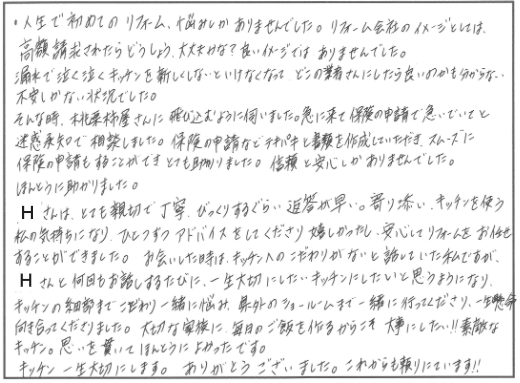 ・人生で初めてのリフォーム、悩みしかありませんでした。リフォーム会社のイメージとしては、
高額請求されたらどうしよう、大丈夫かな？良いイメージではありませんでした。
漏水で泣く泣くキッチンを新しくしないといけなくなって、どこの業者さんにしたら良いのかも分からない、
不安しかない状況でした。
そんな時、桃栗柿屋さんに飛び込むように伺いました。急に来て保険の申請で急いでいてと
迷惑承知で相談しました。保険の申請などテキパキと書類を作成していただき、スムーズに
保険の申請もすることができとても助かりました。信頼と安心しかありませんでした。
ほんとうに助かりました。
Hさんは、とても親切で丁寧、びっくりするぐらい返答が早い。寄り添い、キッチンを使う
私の気持ちになり、ひとつずつアドバイスをしてくださり嬉しかったし、安心してリフォームをお任せ
することができました。お会いした時は、キッチンへのこだわりがないと話していた私ですが、
Hさんと何回もお話しするたびに、一生大切にしたいキッチンにしたいと思うようになり、
キッチンの細部までこだわり一緒に悩み、県外のショールームまで一緒に行ってくださり、一生懸命
向き合ってくださりました。大切な家族に、毎日のご飯を作るからこそ大事にしたい!!素敵な
キッチン。思いを貫いてほんとうによかったです。
キッチン一生大切にします。ありがとうございました。これからも頼りにています!!